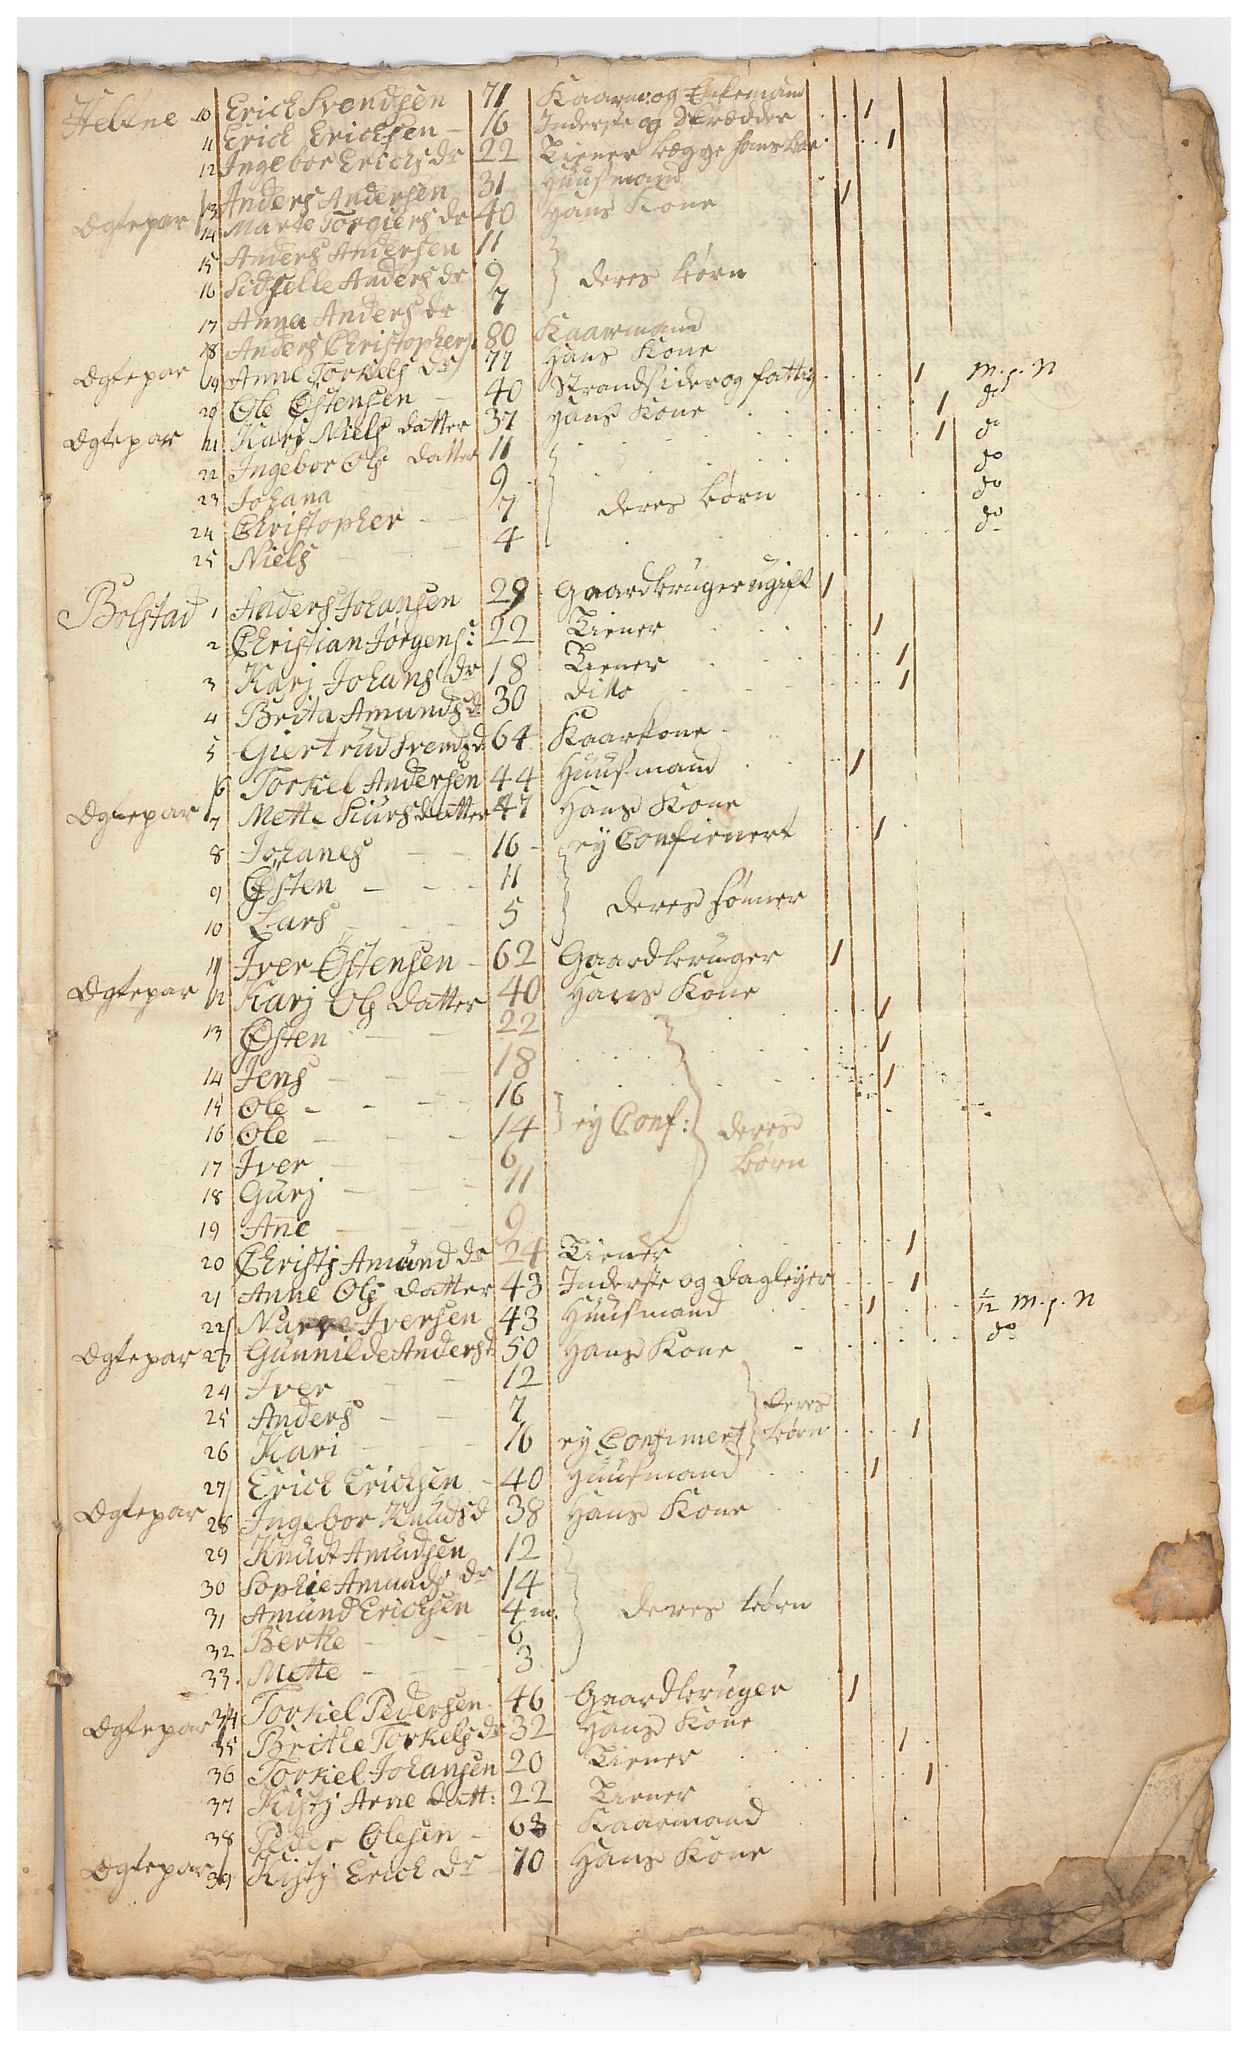 Heltne 10 Erich Svendsen 71 Kaarm: og Enkemand
11 Erich Erichsen - 16 Inderste og Skrædder 1
12 Ingebor Erichs dr 22 Tiener begge hans børn 1
13 Anders Andersen 31 Huusmand 1
Ægtepar 14 Marte Torgiers dr 40 Hans Kone
15 Anders Andersen 11
16 Sidselle Anders dr 9 deres børn
17 Anna Anders dr 7
18 Anders Christophers: 80 Kaarmand
Ægtepar 19 Anne Torkels dr 77 Hans Kone
20 Ole Østensen - 40 Strandsider og fattig 1 m. s. n
Ægtepar 21 Karj Niels datter 37 Hans Kone 1 do
22 Ingebor Ols datter 11 1 do
23 Johana 9 do
24 Christopher - - 7 deres børn do
25 Niels 4 do
Bolstad 1 Anders Johansen 29 Gaardbruger ugift 1
2 Christian Jørgens: 22 Tiener 1
3 Karj Johans dr 18 Tiener 1
4 Brita Amunds dr 30 ditto 1
5 Giertrud Svends d 64 Kaarkone
6 Torkel Andersen 44 Huusmand 1
Ægtepar 7 Mette Siurs datter 47 Hans Kone
8 Johanes 16 ey Confiemert 1
9 Østen - - - 11
10 Lars 5 deres sønner
11 Iver Østensen - 62 Gaardbruger 1
Ægtepar 12 Karj Ols datter 40 Hans Kone
13 Østen 22 1
14 Jens - - - 18 1
15 Ole - - - 16 1
16 Ole - - - 14 ey Conf: deres
17 Iver 6 børn
18 Gurj 11
19 Ane 9
20 Christj Amund dr 24 Tiener 1
21 Anne Ols datter 43 Inderste og dagleyer 1
22 Iversen 43 Huusmand 1 1/12 m. s. n
Ægtepar 23 Gunnilde Anders d 50 Hans Kone - do
24 Iver 12
25 Anders - - 7 deres
26 Kari 16 ey Confimert børn 1
27 Erich Erichsen - 40 Huusmand 1
Ægtepar 28 Ingebor Knuds d 38 Hans Kone
29 Knudt Amudsen 12
30 Sophie Amunds dr 14
31 Amund Erichsen 4 m. deres børn
32 Berthe - - - 6
33. Mette - - - 3
34 Torkel Pedersen 46 Gaardbruger 1
Ægtepar 35 Brithe Torkels dr 32 Hans Kone
36 Torkel Johansen 20 Tiener 1
37 Kistj Arne datt: 22 Tiener 1
38 Peder Olesen - 68 Kaarmand
Ægtepar 39 Kistj Erich dr 70 Hans Kone